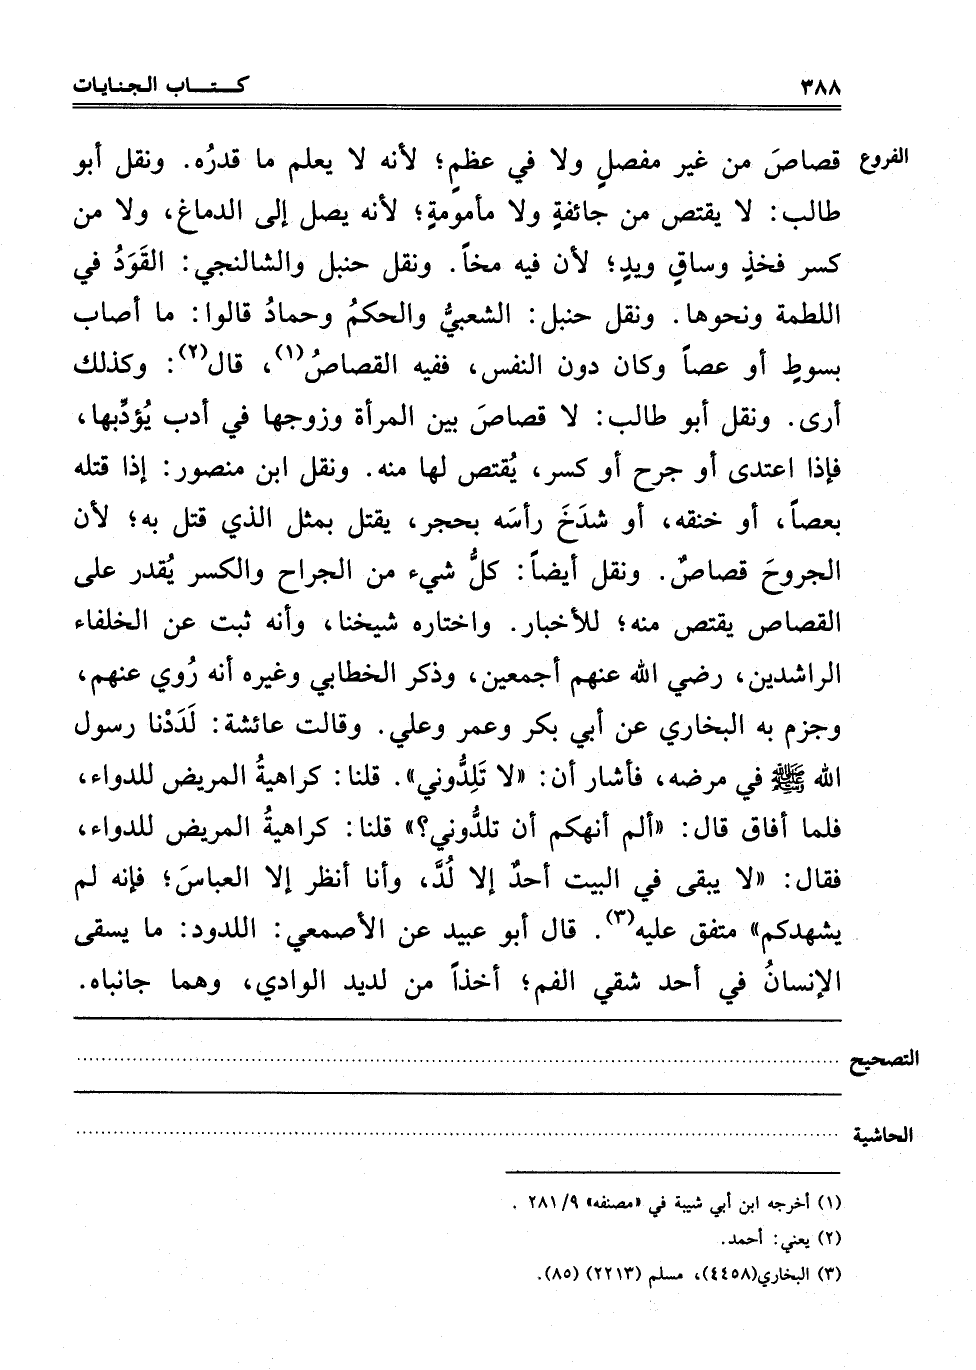 ٣٨٨ كـتـاب الـجـنـايـات
الفروع قصاصَ من غير مفصلٍ ولا في عظمٍ؛ لأنه لا يعلم ما قدرُه. ونقل أبو
طالب: لا يقتص من جائفةٍ ولا مأمومةٍ؛ لأنه يصل إلى الدماغ، ولا من
كسر فخذٍ وساقٍ ويدٍ؛ لأن فيه مخاً. ونقل حنبل والشالنجي: القَوَدُ في
اللطمة ونحوها. ونقل حنبل: الشعبيُّ والحكمُ وحمادُ قالوا: ما أصاب
بسوطٍ أو عصاً وكان دون النفس، ففيه القصاصُ(١)، قال(٢): وكذلك
أرى. ونقل أبو طالب: لا قصاصَ بين المرأة وزوجها في أدب يُؤدِّبها،
فإذا اعتدى أو جرح أو كسر، يُقتص لها منه. ونقل ابن منصور: إذا قتله
بعصاً، أو خنقه، أو شدَخَ رأسَه بحجر، يقتل بمثل الذي قتل به؛ لأن
الجروحَ قصاصٌ. ونقل أيضاً: كلُّ شيء من الجراح والكسر يُقدر على
القصاص يقتص منه؛ للأخبار. واختاره شيخنا، وأنه ثبت عن الخلفاء
الراشدين، رضي الله عنهم أجمعين، وذكر الخطابي وغيره أنه رُوي عنهم،
وجزم به البخاري عن أبي بكر وعمر وعلي. وقالت عائشة: لَدَدْنا رسول
الله ﷺ في مرضه، فأشار أن: «لا تَلِدُّوني». قلنا: كراهيةُ المريض للدواء،
فلما أفاق قال: «ألم أنهكم أن تلدُّوني؟» قلنا: كراهيةُ المريض للدواء،
فقال: «لا يبقى في البيت أحدٌ إلا لُدَّ، وأنا أنظر إلا العباسَ؛ فإنه لم
يشهدكم» متفق عليه(٣). قال أبو عبيد عن الأصمعي: اللدود: ما يسقى
الإنسانُ في أحد شقي الفم؛ أخذاً من لديد الوادي، وهما جانباه.
التصحيح
الحاشية
(١) أخرجه ابن أبي شيبة في «مصنفه» ٩/ ٢٨١ .
(٢) يعني: أحمد.
(٣) البخاري(٤٤٥٨)، مسلم (٢٢١٣) (٨٥).